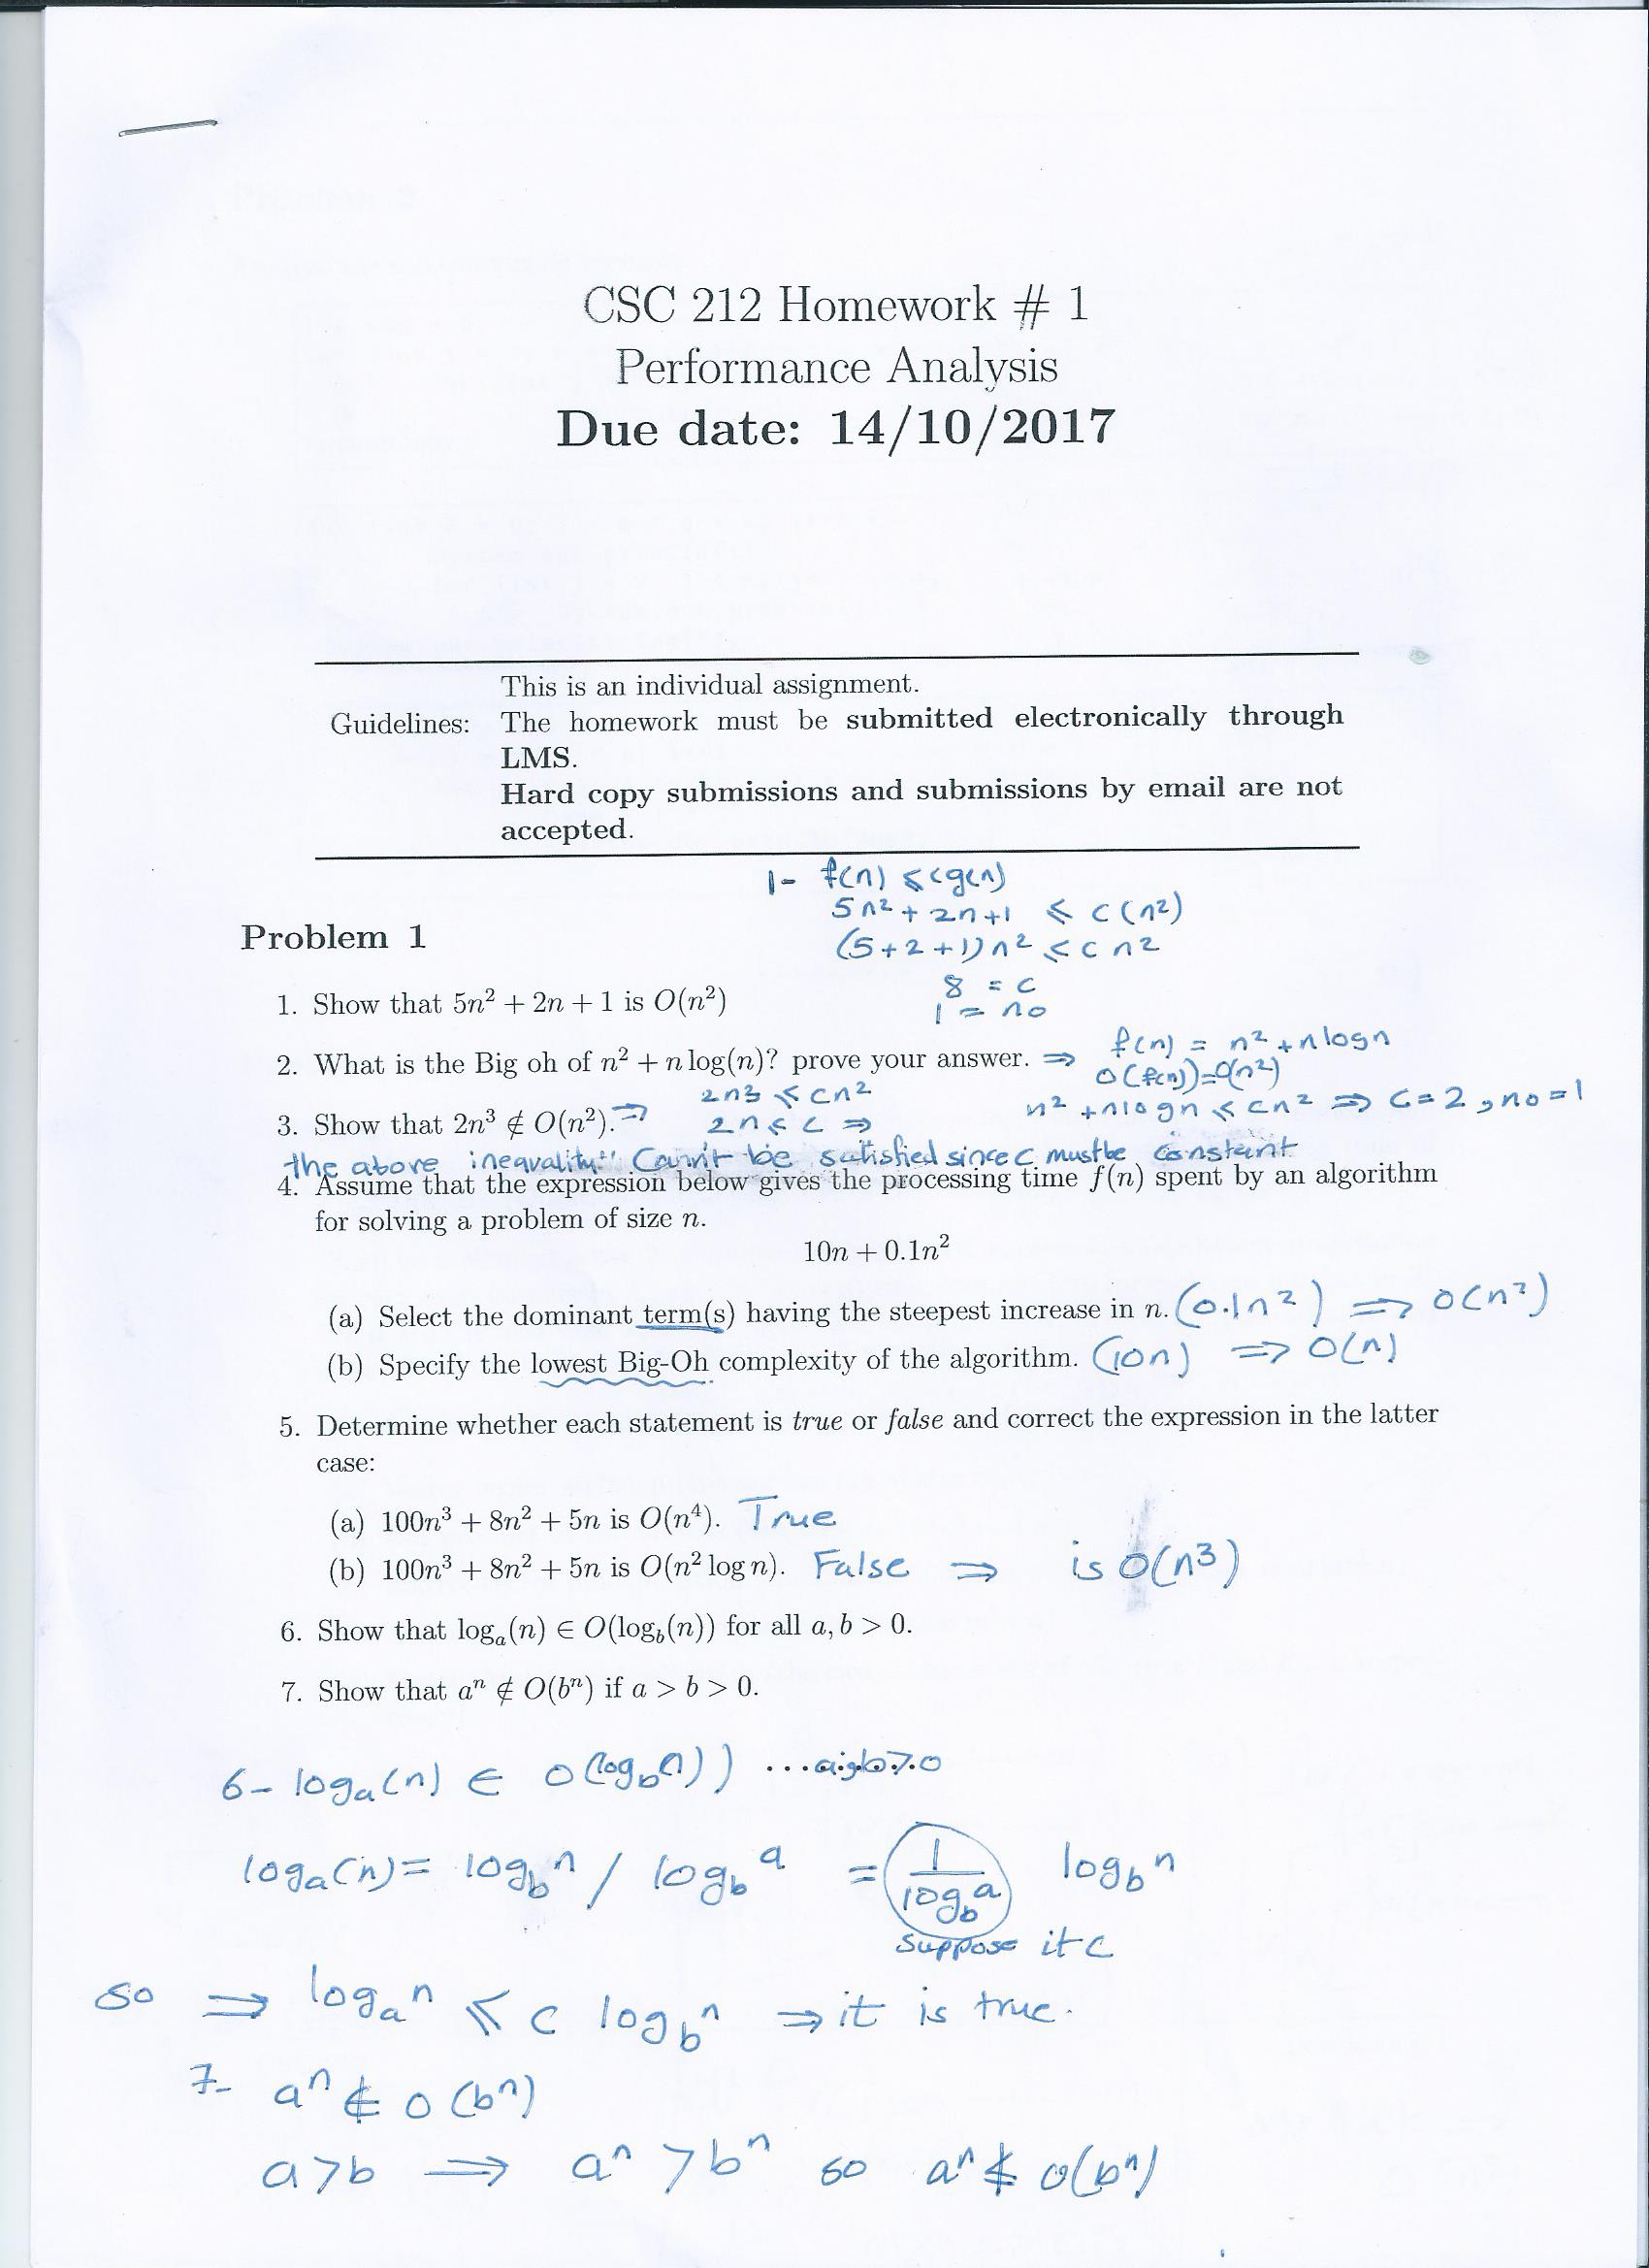 CSC 212 Homework # 1
Performance Analysis
Due date: 14/10/2017
This is an individual assignment.
Guidelines: The homework must be submitted electronically through
LMS.
Hard copy submissions and submissions by email are not
accepted.
1- f(n) ≤ cg(n)
5n² + 2n+1 ≤ c(n²)
Problem 1
(5+2+1)n² ≤ cn²
8 = c
1. Show that 5n² + 2n + 1 is O(n²)
1 = no
f(n) = n² + nlogn
2. What is the Big oh of n² + n log(n)? prove your answer. ⇒
O(f(n))=O(n²)
2n3 ≤ cn²
n² + nlogn ≤ cn² ⇒ c=2, no=1
3. Show that 2n³ ∉ O(n²). ⇒ 2n ≤ c ⇒
the above inequality" Can't be satisfied since c must be constant
4. Assume that the expression below gives the processing time f(n) spent by an algorithm
for solving a problem of size n.
10n + 0.1n²
(a) Select the dominant term(s) having the steepest increase in n. (0.1n²) ⇒ O(n²)
(b) Specify the lowest Big-Oh complexity of the algorithm. (10n) ⇒ O(n)
5. Determine whether each statement is true or false and correct the expression in the latter
case:
(a) 100n³ + 8n² + 5n is O(n⁴). True
(b) 100n³ + 8n² + 5n is O(n² log n). False ⇒ is O(n³)
6. Show that logₐ(n) ∈ O(log_b(n)) for all a, b > 0.
7. Show that aⁿ ∉ O(bⁿ) if a > b > 0.
6- logₐ(n) ∈ O(log_b(n)) ...a,b>0
logₐ(n) = log_b n / log_b a = 1/log_b a log_b n
suppose it c
so ⇒ logₐ n ≤ c log_b n ⇒ it is true.
7- aⁿ ∉ O(bⁿ)
a>b ⇒ aⁿ > bⁿ so aⁿ ∉ O(bⁿ)